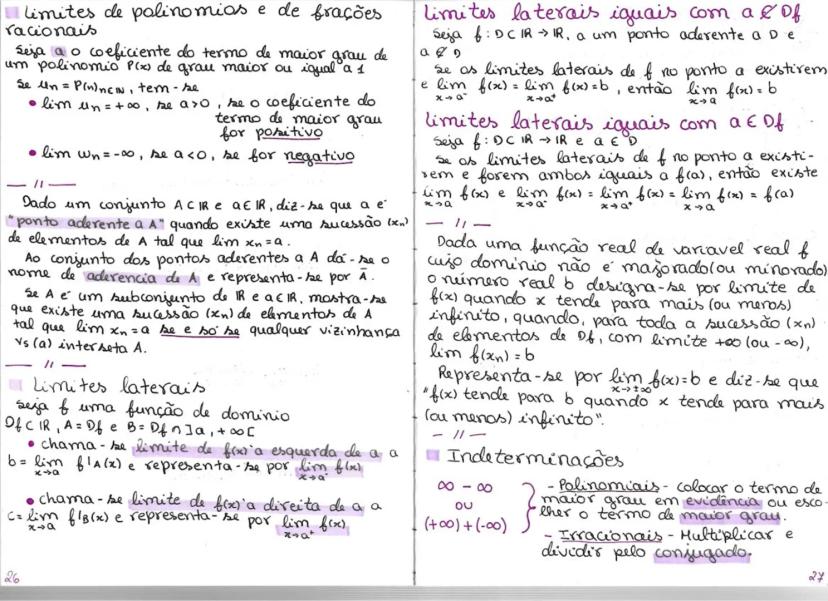 limites de polinomios e de frações
racionais
Seja a o coeficiente do termo de maior grau de
um polinomio P(x) de grau maior ou igual a 1
Se un = P(n)n∈IN, tem-se
• lim un = +∞, se a>0, se o coeficiente do
termo de maior grau
for positivo
• lim wn = -∞, se a<0, se for negativo
— 11 —
Dado um conjunto A⊂IR e a∈IR, diz-se que a é
"ponto aderente a A" quando existe uma sucessão (xn)
de elementos de A tal que lim xn = a.
Ao conjunto dos pontos aderentes a A dá-se o
nome de aderencia de A e representa-se por Ā.
Se A é um subconjunto de IR e a⊂IR, mostra-se
que existe uma sucessão (xn) de elementos de A
tal que lim xn = a se e só se qualquer vizinhança
Vs(a) interseta A.
— 11 —
Limites laterais
Seja f uma função de dominio
Df⊂IR, A = Df e B = Df ∩ ]a, +∞[
• chama-se limite de f(x) à esquerda de a a
b = lim f|A(x) e representa-se por lim f(x)
x→a x→a⁻
• chama-se limite de f(x) à direita de a a
c = lim f|B(x) e representa-se por lim f(x)
x→a x→a⁺
26
limites laterais iguais com a ∉ Df
Seja f: D⊂IR → IR, a um ponto aderente a D e
a ∉ D
Se os limites laterais de f no ponto a existirem
e lim f(x) = lim f(x) = b, então lim f(x) = b
x→a⁻ x→a⁺ x→a
limites laterais iguais com a ∈ Df
Seja f: D⊂IR → IR e a ∈ D
Se os limites laterais de f no ponto a existi-
rem e forem ambos iguais a f(a), então existe
lim f(x) e lim f(x) = lim f(x) = lim f(x) = f(a)
x→a x→a⁻ x→a⁺ x→a
— 11 —
Dada uma função real de variavel real f
cujo dominio não é majorado (ou minorado)
o número real b designa-se por limite de
f(x) quando x tende para mais (ou menos)
infinito, quando, para toda a sucessão (xn)
de elementos de Df, com limite +∞ (ou -∞),
lim f(xn) = b
Representa-se por lim f(x) = b e diz-se que
x→±∞
"f(x) tende para b quando x tende para mais
(ou menos) infinito".
— 11 —
Indeterminações
∞ - ∞
ou
(+∞) + (-∞)
- Polinomiais - colocar o termo de
maior grau em evidência ou esco-
lher o termo de maior grau.
- Irracionais - Multiplicar e
dividir pelo conjugado.
27